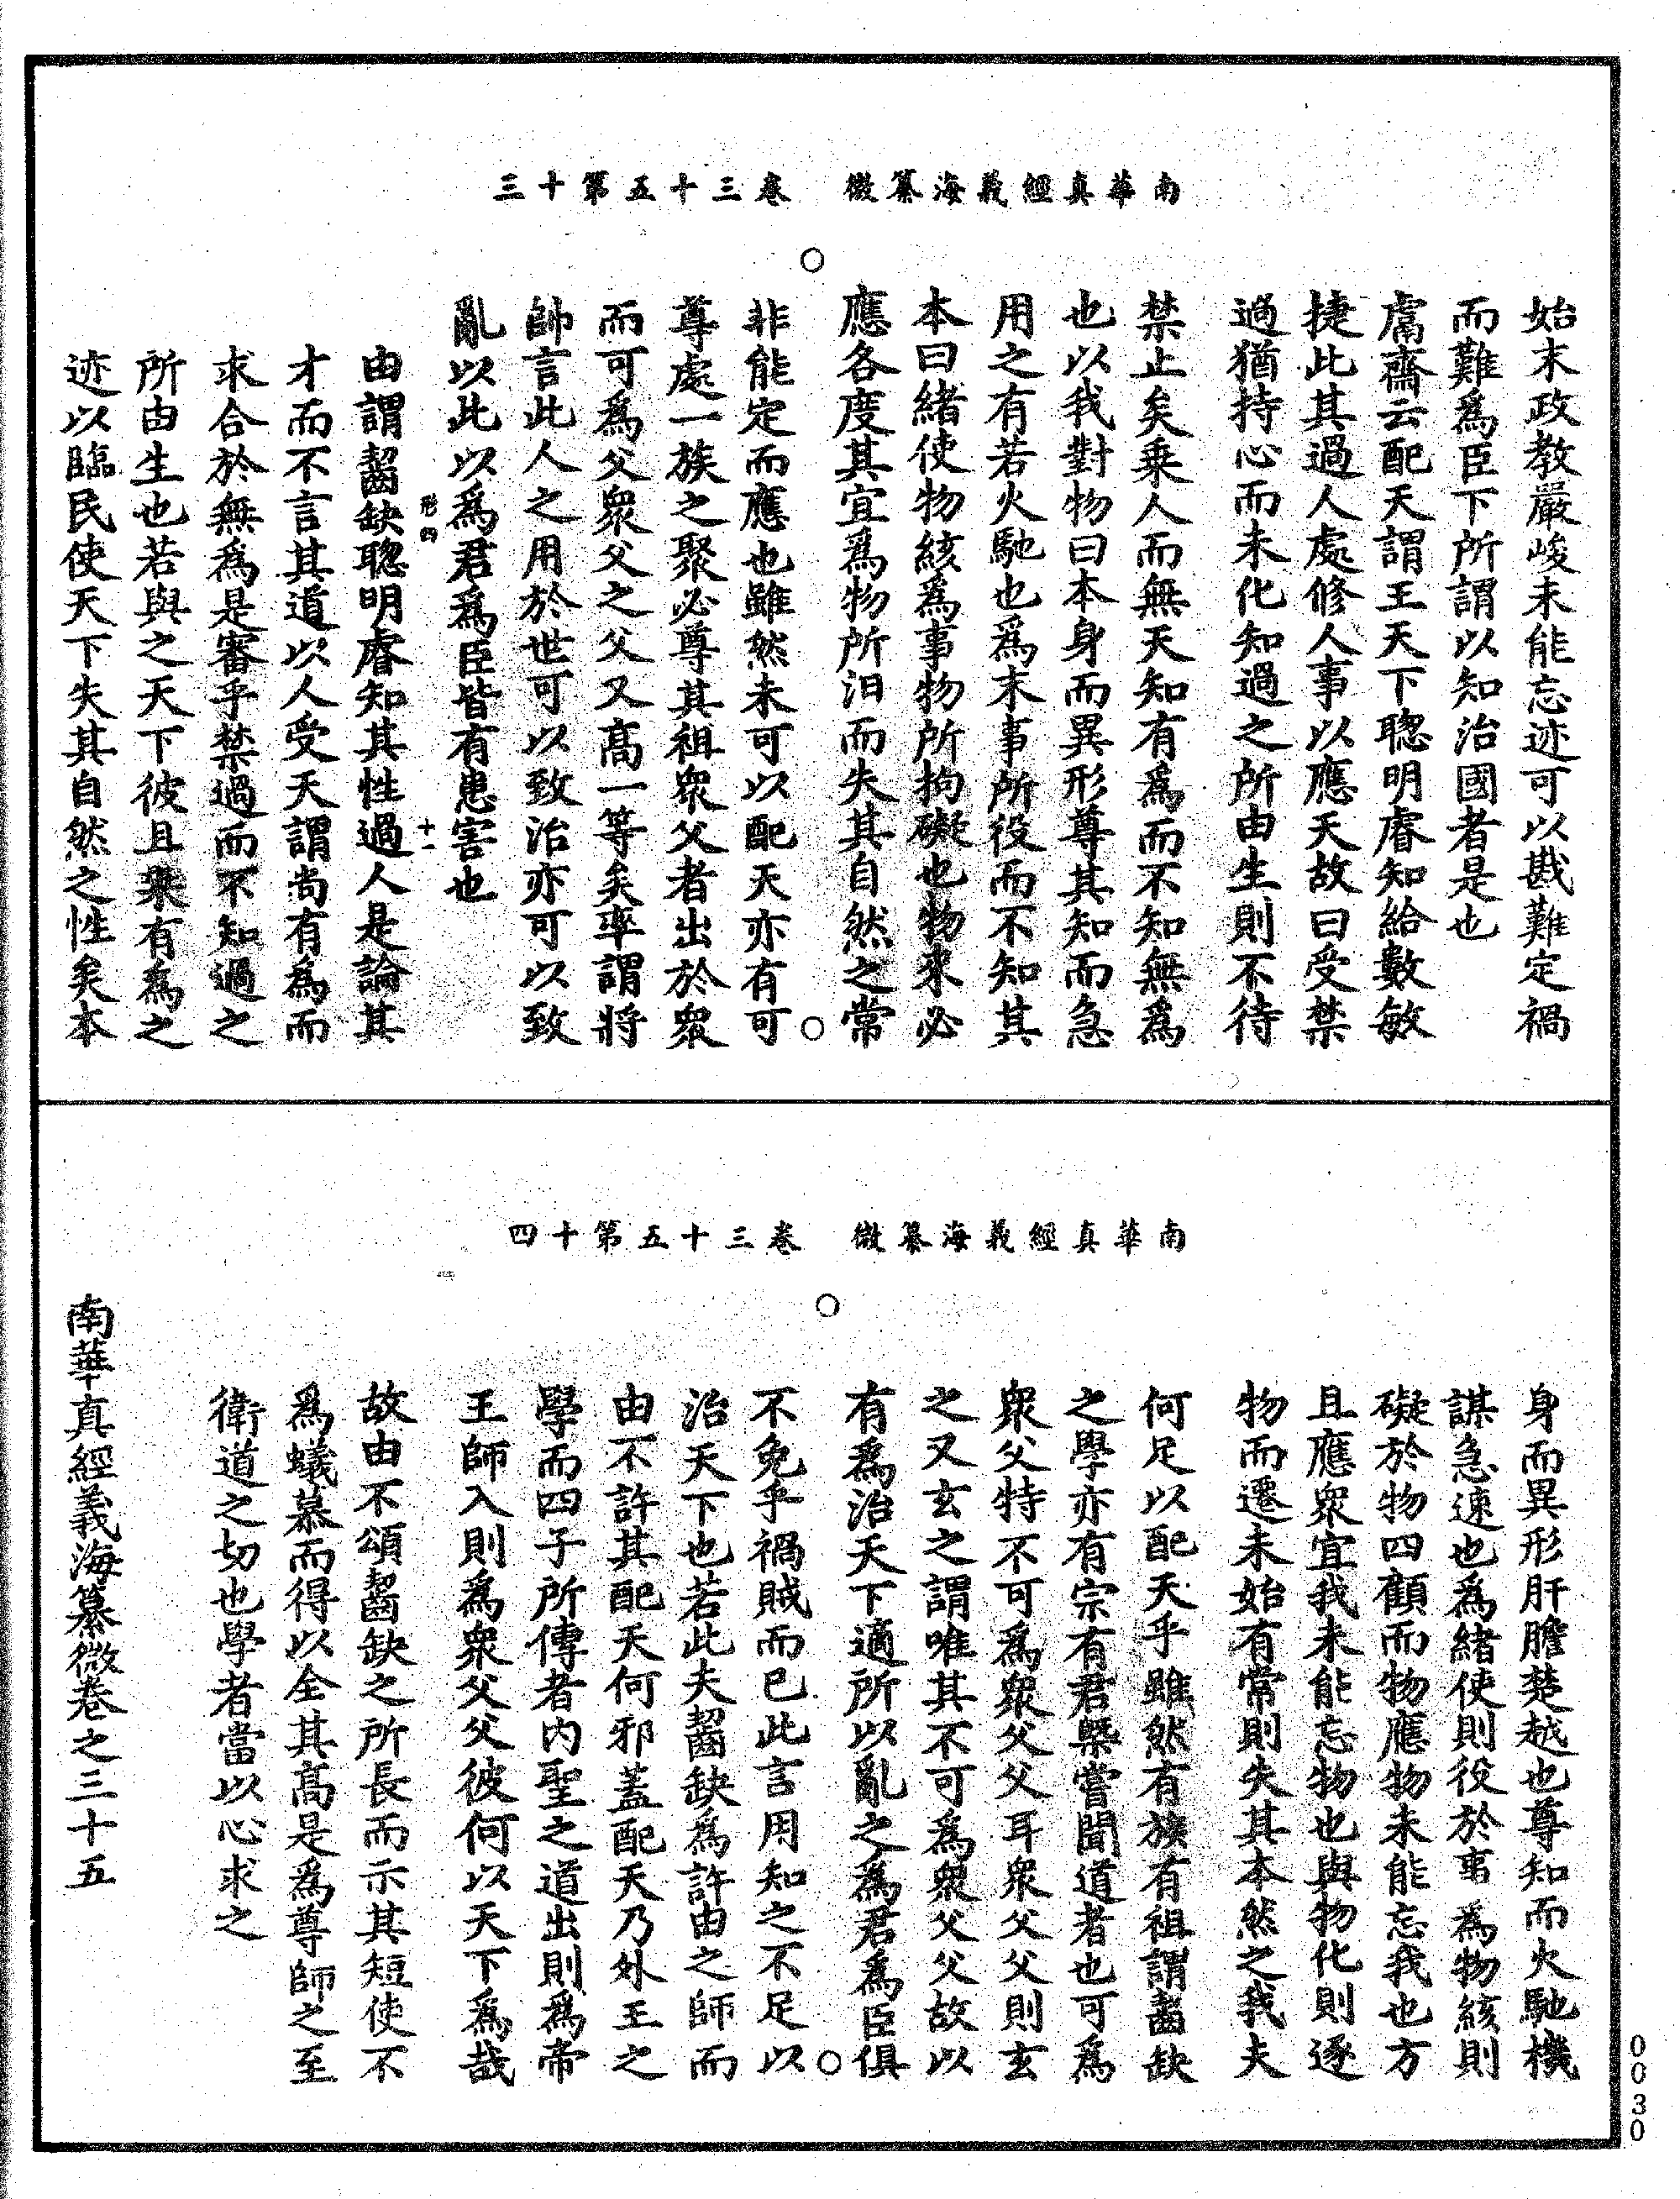 南華真經義海纂微　卷三十五第十三
始末政教嚴峻未能忘迹可以戡難定禍
而難為臣下所謂以知治國者是也
鬳齋云配天謂王天下聰明睿知給數敏
捷此其過人處修人事以應天故曰受禁
過猶持心而未化知過之所由生則不待
禁止矣乗人而無天知有為而不知無為
也以我對物曰本身而異形尊其知而急
用之有若火馳也為末事所役而不知其
本曰緒使物絯為事物所拘礙也物來必
應各度其宜為物所汩而失其自然之常
非能定而應也雖然未可以配天亦有可
尊處一族之聚必尊其祖衆父者出於衆
而可為父衆父之父又髙一等矣率謂將
帥言此人之用於世可以致治亦可以致
亂以此以為君為臣皆有患害也
形四　十一
由謂齧缺聰明睿知其性過人是論其
才而不言其道以人受天謂尚有為而
求合於無為是審乎禁過而不知過之
所由生也若與之天下彼且乗有為之
迹以臨民使天下失其自然之性矣本
南華真經義海纂微　卷三十五第十四
身而異形肝膽楚越也尊知而火馳機
謀急速也為緒使則役於事為物絯則
礙於物四顧而物應物未能忘我也方
且應衆宜我未能忘物也與物化則逐
物而遷未始有常則失其本然之我夫
何足以配天乎雖然有族有祖謂齧缺
之學亦有宗有君㮣嘗聞道者也可為
衆父特不可為衆父父耳衆父父則玄
之又玄之謂唯其不可為衆父父故以
有為治天下適所以亂之為君為臣俱
不免乎禍賊而已此言用知之不足以
治天下也若此夫齧缺為許由之師而
由不許其配天何邪蓋配天乃外王之
學而四子所傳者内聖之道出則為帝
王師入則為衆父父彼何以天下為哉
故由不頌齧缺之所長而示其短使不
為蟻慕而得以全其髙是為尊師之至
衛道之切也學者當以心求之
南華真經義海纂微卷之三十五
0030